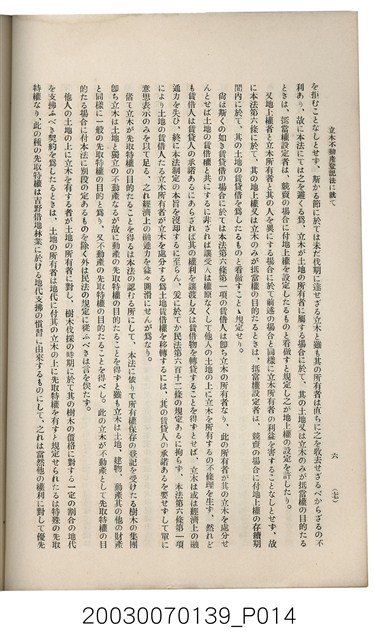 立木不動產登記法に就て
六
(七)
を拒むことなしとせず、斯かる節に於ては未だ伐期に達せざる立木と雖も其の所有者は直ちに之を收去せざるべからざるの不
利あり、故に本法にては之を避くる爲、立木が土地の所有者に屬する場合に於て、其の土地又は立木のみが抵當權の目的たる
ときは、抵當權設定者は、競賣の場合に付地上權を設定したるものと看做すと規定し之が地上權の設定を許したり。
又地上權者と立木所有者と其の人を異にする場合に於て前述の場合と同樣に立木所有者の利益を害することなしとせず、故
に本法第六條に於て、其の地上權又は立木のみが抵當權の目的たるときは、抵當權設定者は、競賣の場合に付地上權の存續期
間内に於て、其の土地の賃貸借を爲したるものと看做すことゝ規定せり。
尙ほ斯くの如き賃貸借の場合に於ては本法第六條第一項の賃借人は卽ち立木の所有者なり、此の所有者が其の立木を處分せ
んとせば土地の賃借權と共にするに非ざれば讓受人は權原なくして他人の土地の上に立木を所有するの不條理を生ず、然れど
も賃借人は賃貸人の承諾あるにあらざれば其の權利を讓渡し又は賃借物を轉貸することを得ずとせば、立木は或は經濟上の融
通力を失ひ、終に本法制定の本旨を沒却するに至らん、爰に於てか民法第六百十二條の規定あるに拘らず、本法第六條第一項
により土地の賃借人たる立木所有者が立木を處分する爲土地賃借權を移轉するには、其の賃貸人の承諾あるを要せずして單に
意思表示のみを以て足る、之れ經濟上の融通力を益々圓滑にせんが爲なり。
偖て立木が先取特權の目的たることを得るは本法の認むる所にして、本法に依りて所有權保存の登記を受けたる樹木の集團
卽ち立木は土地と獨立の不動產なるが故に動產の先取特權の目的たることを得ずと雖も立木は土地、建物、動產其の他の財產
と同樣に一般の先取特權の目的と爲り、又不動產の先取特權の目的たることを得べし。此の立木が不動產として先取特權の目
的たる場合に付本法に別段の定あるものを除く外は民法の規定に從ふべきは言を俟たず。
他人の土地の上に立木を有する者が土地の所有者に對し、樹木伐採の時期に於て其の樹木の價格に對する一定の割合の地代
を支拂ふべき契約を爲したるときは、土地の所有者は地代に付其の立木の上に先取特權を有すと規定せられたるは特殊の先取
特權なり、此の種の先取特權は吉野借地林業に於ける地代支拂の慣習に由來するものにして、之れは當然他の權利に對して優先
20030070139_P014